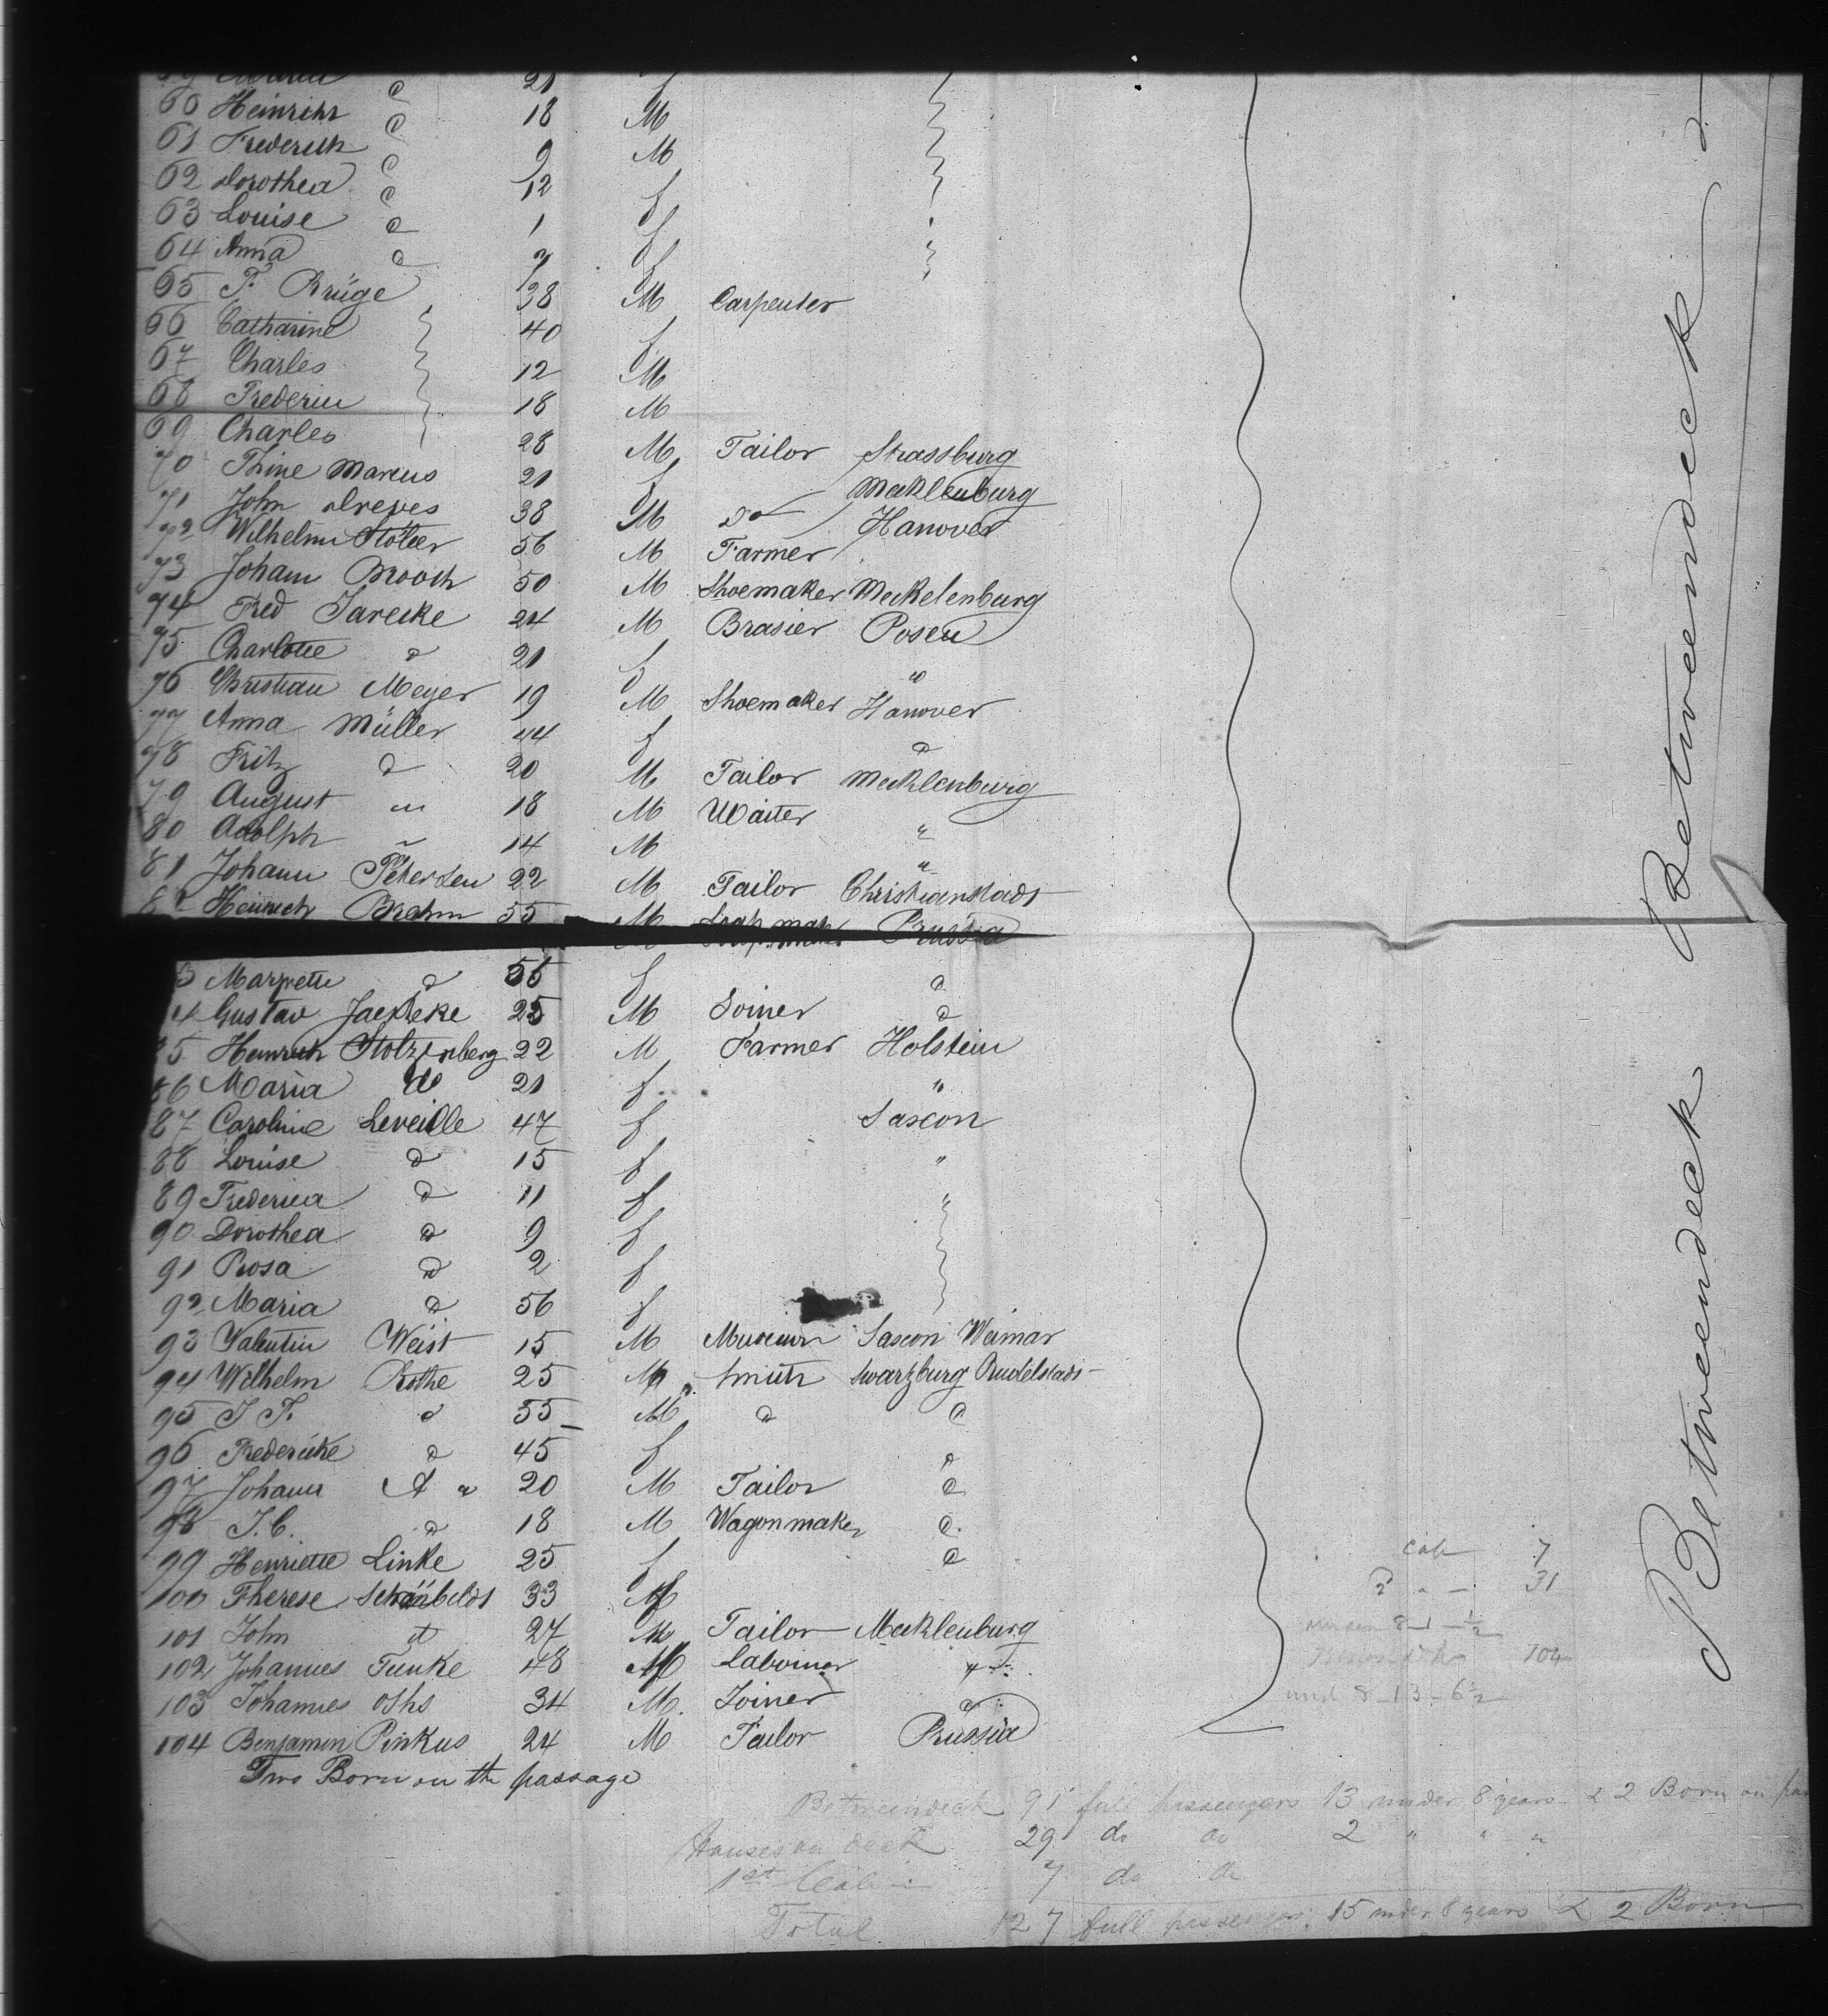 21
60 Heinrich d 18 M
61 Frederich d 9 M
62 Dorothea d 12 f
63 Louise d 1 f
64 Anna d f
65 F. Krüge 38 M Carpenter
66 Catharine 40 f
67 Charles 12 M
68 18 M
69 Charles 28 M Tailor Strassburg
70 Thine Marcus 21 f Mecklenburg
71 John Dreves 38 M Do Hanover
72 Wilhelm 56 M Farmer
73 Johann 50 M Shoemaker Meckelenburg
74 Fred Jarecke 24 M Brasier Posen
75 Charlotte d 21 f "
76 Christian Meyer 19 M Shoemaker Hanover
77 Anna Müller 44 f d
78 Fritz d 20 M Tailor Mecklenburg
79 August " 18 M Waiter "
80 Adolph " 14 M "
81 Johann Petersen 22 M Tailor Christianstadt
Heinrich Brehm 55 M Soap maker Prussia
3 d 55 f d
4 Gustav 25 M Joiner d
85 Heinrich Stolzenberg 22 M Farmer Holstein
86 Maria do 21 f "
87 Caroline Leveille 47 f Saxon
88 Louise d 15 f "
89 Frederica d 11 f "
90 Dorothea d 9 f
91 Rosa d 2 f
92 Maria d 56 f
93 Valentin Weist 15 M Saxon Weimar
94 Wilhelm Rothe 25 M Smith Swarzburg Rudelstadt
95 J F. d 55 M d d
96 Fredericke d 45 f d
97 Johann A " 20 M Tailor d
98 J. C. d 18 M Wagonmaker d
99 Henriette Linke 25 f d
100 Therese 33 f
101 John d 27 M Tailor Mecklenburg
102 Johannes Funke 48 M Labourer "
103 Johannes Oths 34 M. Joiner d
104 Benjamin Pinkus 24 M Tailor Prussia
Two Born on the passage
Betweendeck
Betweendeck
Cab 7
2 " 31
under 8 1 1/2
104
und 8 13 6 1/2
Betweendeck 91 full passengers 13 under 8 years & 2 Born on pas
Houses on deck 29 do do 2 " " "
1st Cabin 7 do do
Total 127 full passengers. 15 under 8 years & 2 Born